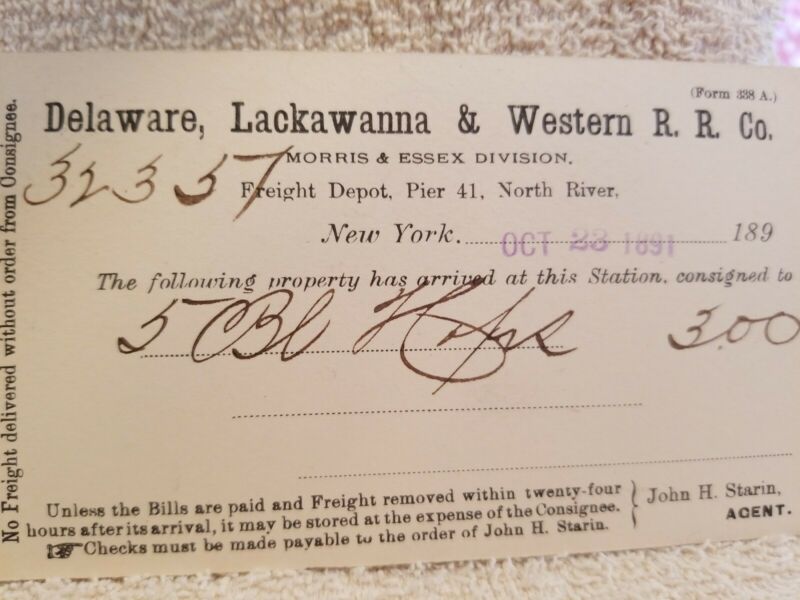 (Form 338 A.)
Delaware, Lackawanna & Western R. R. Co.
MORRIS & ESSEX DIVISION.
32357
Freight Depot, Pier 41, North River,
New York. OCT 23 1891 189
The following property has arrived at this Station, consigned to
5 Bl Hops 3.00
Unless the Bills are paid and Freight removed within twenty-four
hours after its arrival, it may be stored at the expense of the Consignee.
Checks must be made payable to the order of John H. Starin.
John H. Starin,
AGENT.
No Freight delivered without order from Consignee.